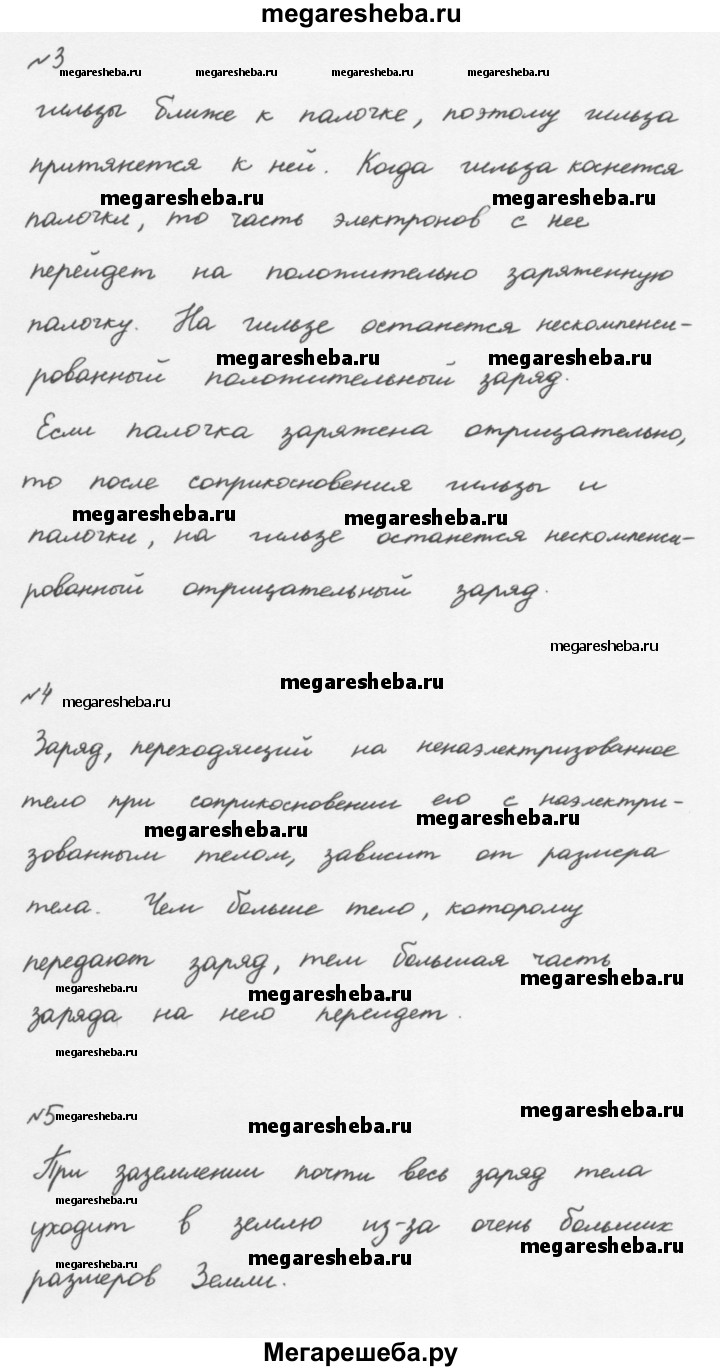 megaresheba.ru
№3
megaresheba.ru megaresheba.ru megaresheba.ru megaresheba.ru
гильзы ближе к палочке, поэтому гильза
притянется к ней. Когда гильза коснется
megaresheba.ru megaresheba.ru
палочки, то часть электронов с нее
перейдет на положительно заряженную
палочку. На гильзе останется нескомпенси-
megaresheba.ru megaresheba.ru
рованный положительный заряд.
Если палочка заряжена отрицательно,
то после соприкосновения гильзы и
megaresheba.ru megaresheba.ru
палочки, на гильзе останется нескомпенси-
рованный отрицательный заряд.
megaresheba.ru
megaresheba.ru
№4 megaresheba.ru
Заряд, переходящий на ненаэлектризованное
тело при соприкосновении его с наэлектри-
megaresheba.ru megaresheba.ru
зованным телом, зависит от размера
тела. Чем больше тело, которому
передают заряд, тем большая часть
megaresheba.ru megaresheba.ru megaresheba.ru
заряда на него перейдет.
megaresheba.ru
№5 megaresheba.ru megaresheba.ru megaresheba.ru
При заземлении почти весь заряд тела
megaresheba.ru
уходит в землю из-за очень больших
megaresheba.ru megaresheba.ru megaresheba.ru
размеров Земли.
Мегарешеба.ру